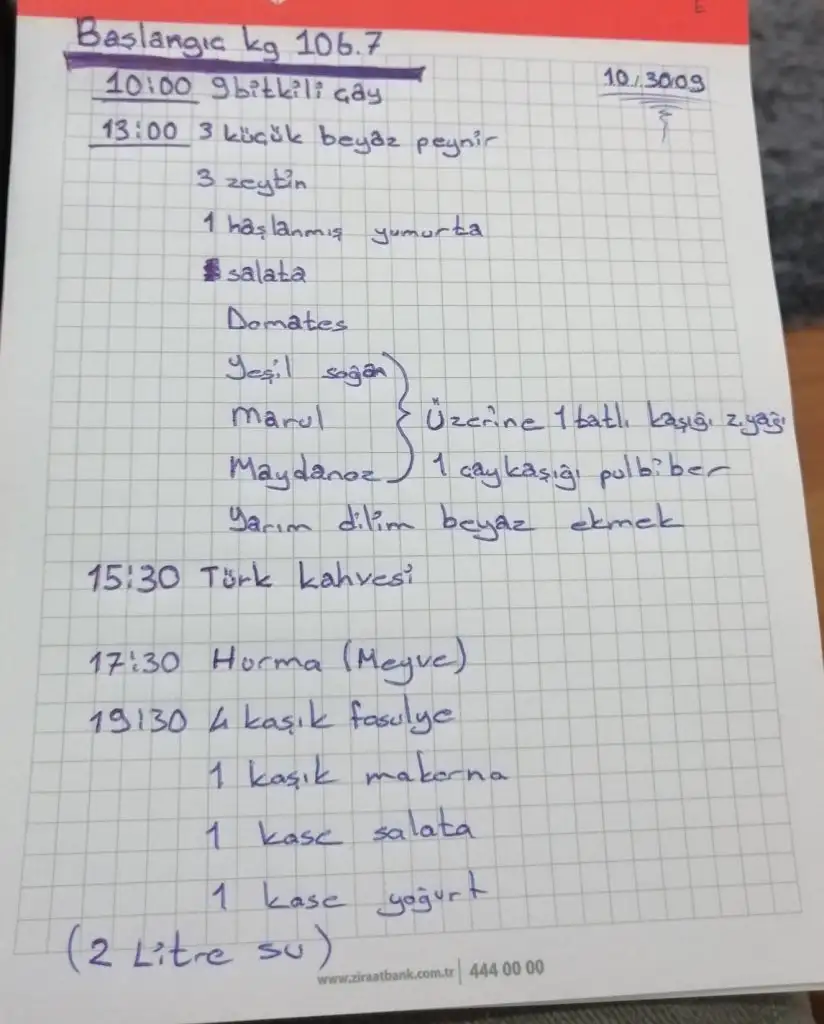 Başlangıc kg 106.7
10:00 9bitkili çay
10.3009
13:00 3 küçük beyaz peynir
3 zeytin
1 haşlanmış yumurta
salata
Domates
Yeşil soğan
Marul
Üzerine 1 tatlı kaşığı z.yağı
Maydanoz
1 çay kaşığı pulbiber
Yarım dilim beyaz ekmek
15:30 Türk kahvesi
17:30 Hurma (Meyve)
19:30 4 kaşık fasulye
1 kaşık makarna
1 kase salata
1 kase yoğurt
(2 Litre su)
www.ziraatbank.com.tr | 444 00 00